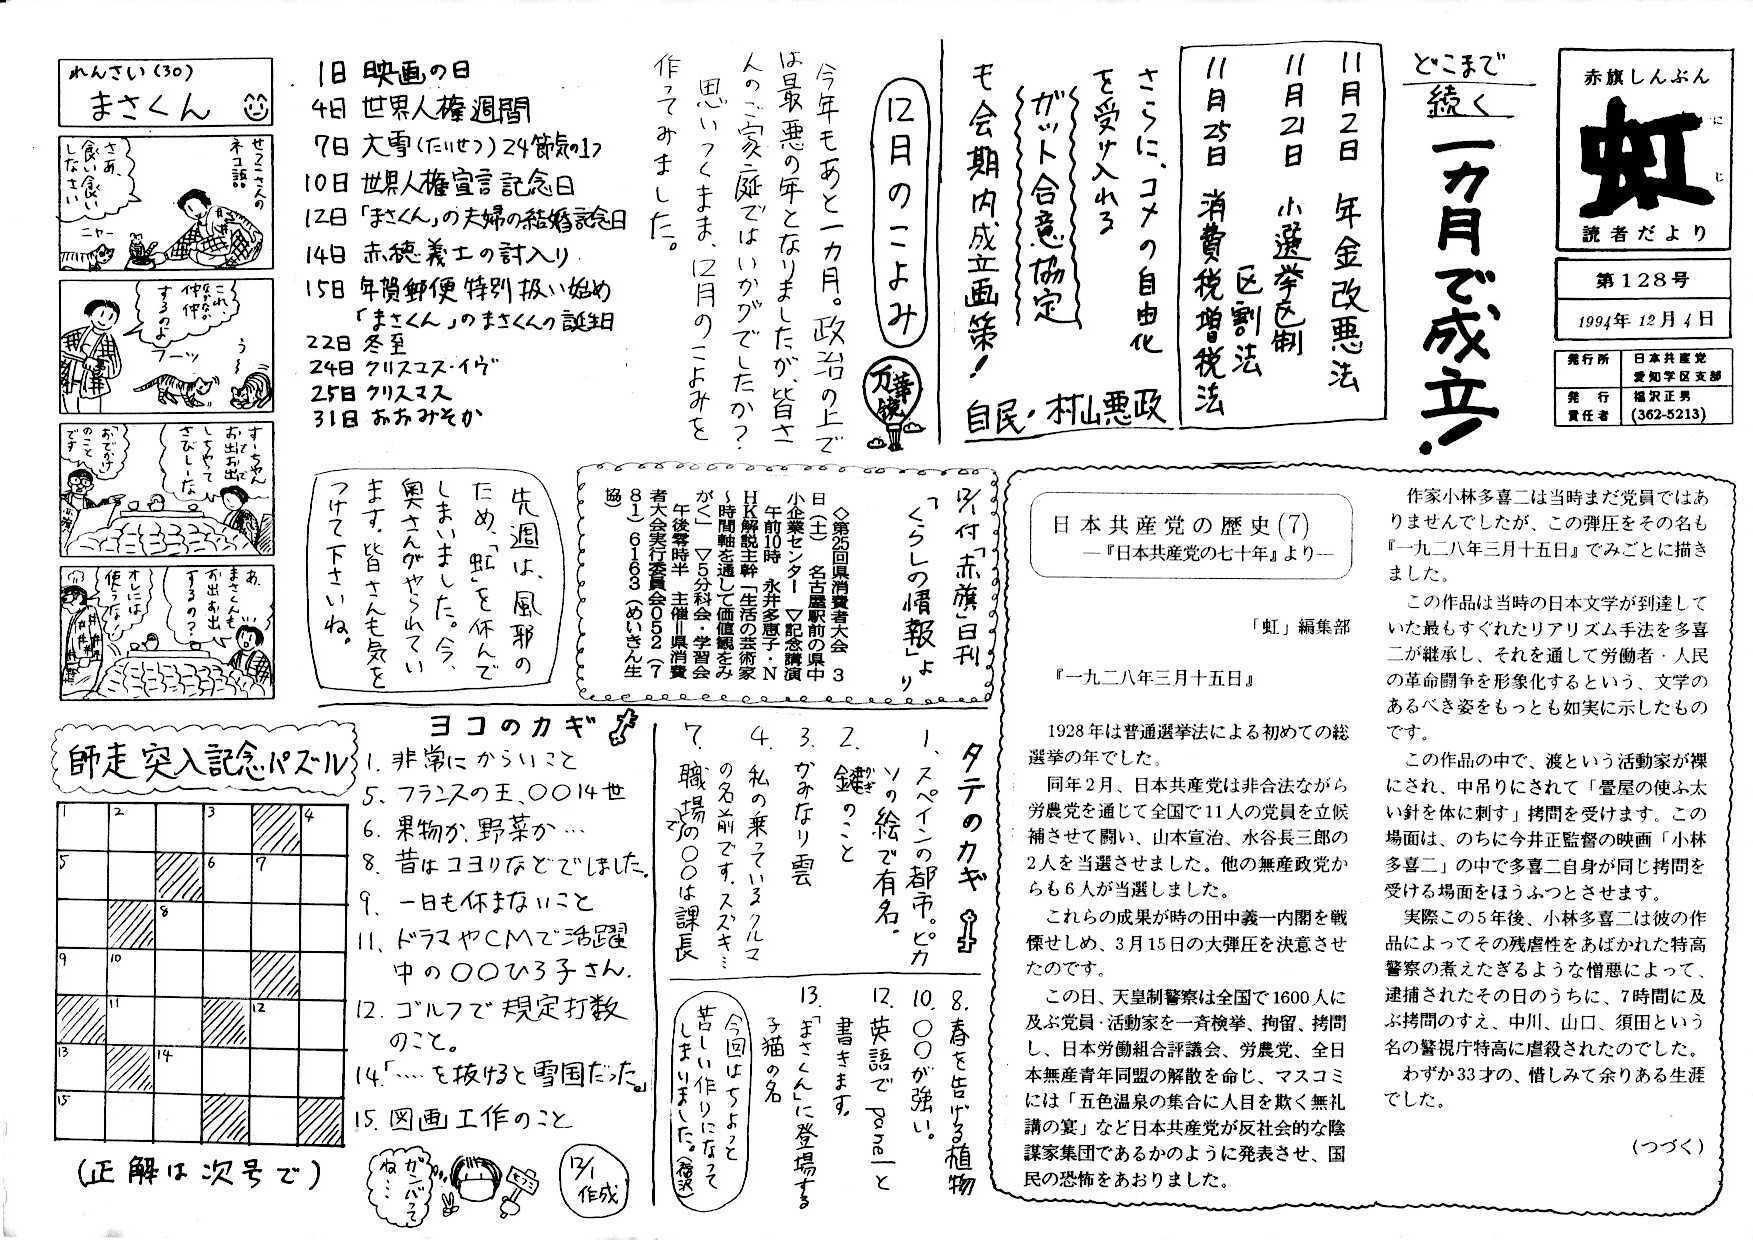 赤旗しんぶん
虹
にじ
読者だより
第128号
1994年12月4日
発行所
日本共産党
愛知学区支部
発行
責任者
福沢正男
(362-5213)
どこまで
続く
一カ月で成立!
11月2日 年金改悪法
11月21日 小選挙区制
区割法
11月25日 消費税増税法
さらに、コメの自由化
を受け入れる
ガット合意協定
も会期内成立画策!
自民・村山悪政
12月のこよみ
万華鏡
今年もあと一カ月。政治の上で
は最悪の年となりましたが、皆さ
んのご家庭ではいかがでしたか?
思いつくまま、12月のこよみを
作ってみました。
1日 映画の日
4日 世界人権週間
7日 大雪(たいせつ)24節気の1つ
10日 世界人権宣言記念日
12日「まさくん」の夫婦の結婚記念日
14日 赤穂義士の討入り
15日 年賀郵便特別扱い始め
「まさくん」のまさくんの誕生日
22日 冬至
24日 クリスマス・イヴ
25日 クリスマス
31日 おおみそか
れんさい(30)
まさくん
せつこさんの
ネコ語
さあ、
食い食い
しなさい
ニャー
これ、
なかなか
仲仲
するのよ
フーッ
う〜
すーちゃん
おでで
お出お出
しちゃって
さびしーな
「おでかけ」
のこと
です
あ、
まさくんも
お出お出
するの?
オレには
使うな!
日本共産党の歴史(7)
―『日本共産党の七十年』より―
「虹」編集部
『一九二八年三月十五日』
1928年は普通選挙法による初めての総
選挙の年でした。
同年2月、日本共産党は非合法ながら
労農党を通じて全国で11人の党員を立候
補させて闘い、山本宣治、水谷長三郎の
2人を当選させました。他の無産政党か
らも6人が当選しました。
これらの成果が時の田中義一内閣を戦
慄せしめ、3月15日の大弾圧を決意させ
たのです。
この日、天皇制警察は全国で1600人に
及ぶ党員・活動家を一斉検挙、拘留、拷問
し、日本労働組合評議会、労農党、全日
本無産青年同盟の解散を命じ、マスコミ
には「五色温泉の集合に人目を欺く無礼
講の宴」など日本共産党が反社会的な陰
謀家集団であるかのように発表させ、国
民の恐怖をあおりました。
作家小林多喜二は当時まだ党員ではあ
りませんでしたが、この弾圧をその名も
『一九二八年三月十五日』でみごとに描き
ました。
この作品は当時の日本文学が到達して
いた最もすぐれたリアリズム手法を多喜
二が継承し、それを通して労働者・人民
の革命闘争を形象化するという、文学の
あるべき姿をもっとも如実に示したもの
です。
この作品の中で、渡という活動家が裸
にされ、中吊りにされて「畳屋の使ふ太
い針を体に刺す」拷問を受けます。この
場面は、のちに今井正監督の映画「小林
多喜二」の中で多喜二自身が同じ拷問を
受ける場面をほうふつとさせます。
実際この5年後、小林多喜二は彼の作
品によってその残虐性をあばかれた特高
警察の煮えたぎるような憎悪によって、
逮捕されたその日のうちに、7時間に及
ぶ拷問のすえ、中川、山口、須田という
名の警視庁特高に虐殺されたのでした。
わずか33才の、惜しみて余りある生涯
でした。
(つづく)
12/1付「赤旗」日刊
「くらしの情報」より
◇第25回県消費者大会 3
日(土) 名古屋駅前の県中
小企業センター ▽記念講演
午前10時 永井多恵子・N
HK解説主幹「生活の芸術家
〜時間軸を通して価値観をみ
がく」 ▽5分科会・学習会
午後零時半 主催=県消費
者大会実行委員会052(7
81)6163(めいきん生
協)
先週は、風邪の
ため、「虹」を休んで
しまいました。今、
奥さんがやられてい
ます。皆さんも気を
つけて下さいね。
師走突入記念パズル
1 2 3 4
5 6 7
8
9 10
11 12
13 14
15
(正解は次号で)
ヨコのカギ
1. 非常にからいこと
5. フランスの王、〇〇14世
6. 果物か、野菜か…
8. 昔はコヨリなどでしました。
9. 一日も休まないこと
11. ドラマやCMで活躍
中の〇〇ひろ子さん.
12. ゴルフで規定打数
のこと。
14.「‥‥を抜けると雪国だった。」
15. 図画工作のこと
ガンバって
ね…
せつこ
12/1
作成
タテのカギ
1. スペインの都市。ピカ
ソの絵で有名。
2. 鍵のこと
かぎ
3. かみなり雲
4. 私の乗っているクルマ
の名前です。スズキ…
7. 職場での〇〇は課長
8. 春を告げる植物
10. 〇〇が強い。
12. 英語でpanelと
書きます。
13. 「まさくん」に登場する
子猫の名
今回はちょっと
苦しい作りになって
しまいました。(福沢)